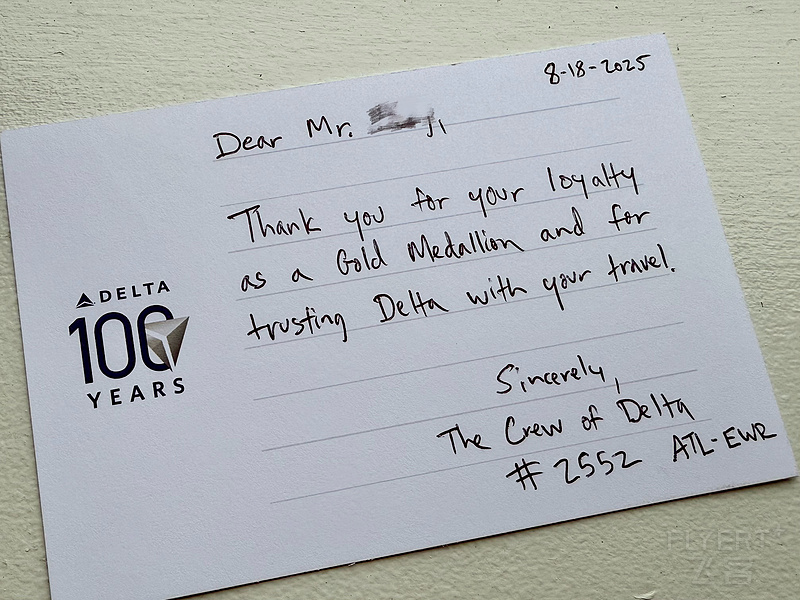 8-18-2025
Dear Mr.
Thank you for your loyalty
as a Gold Medallion and for
trusting Delta with your travel.
Sincerely,
The Crew of Delta
#2552 ATL-EWR
DELTA
100
YEARS
FLYERT